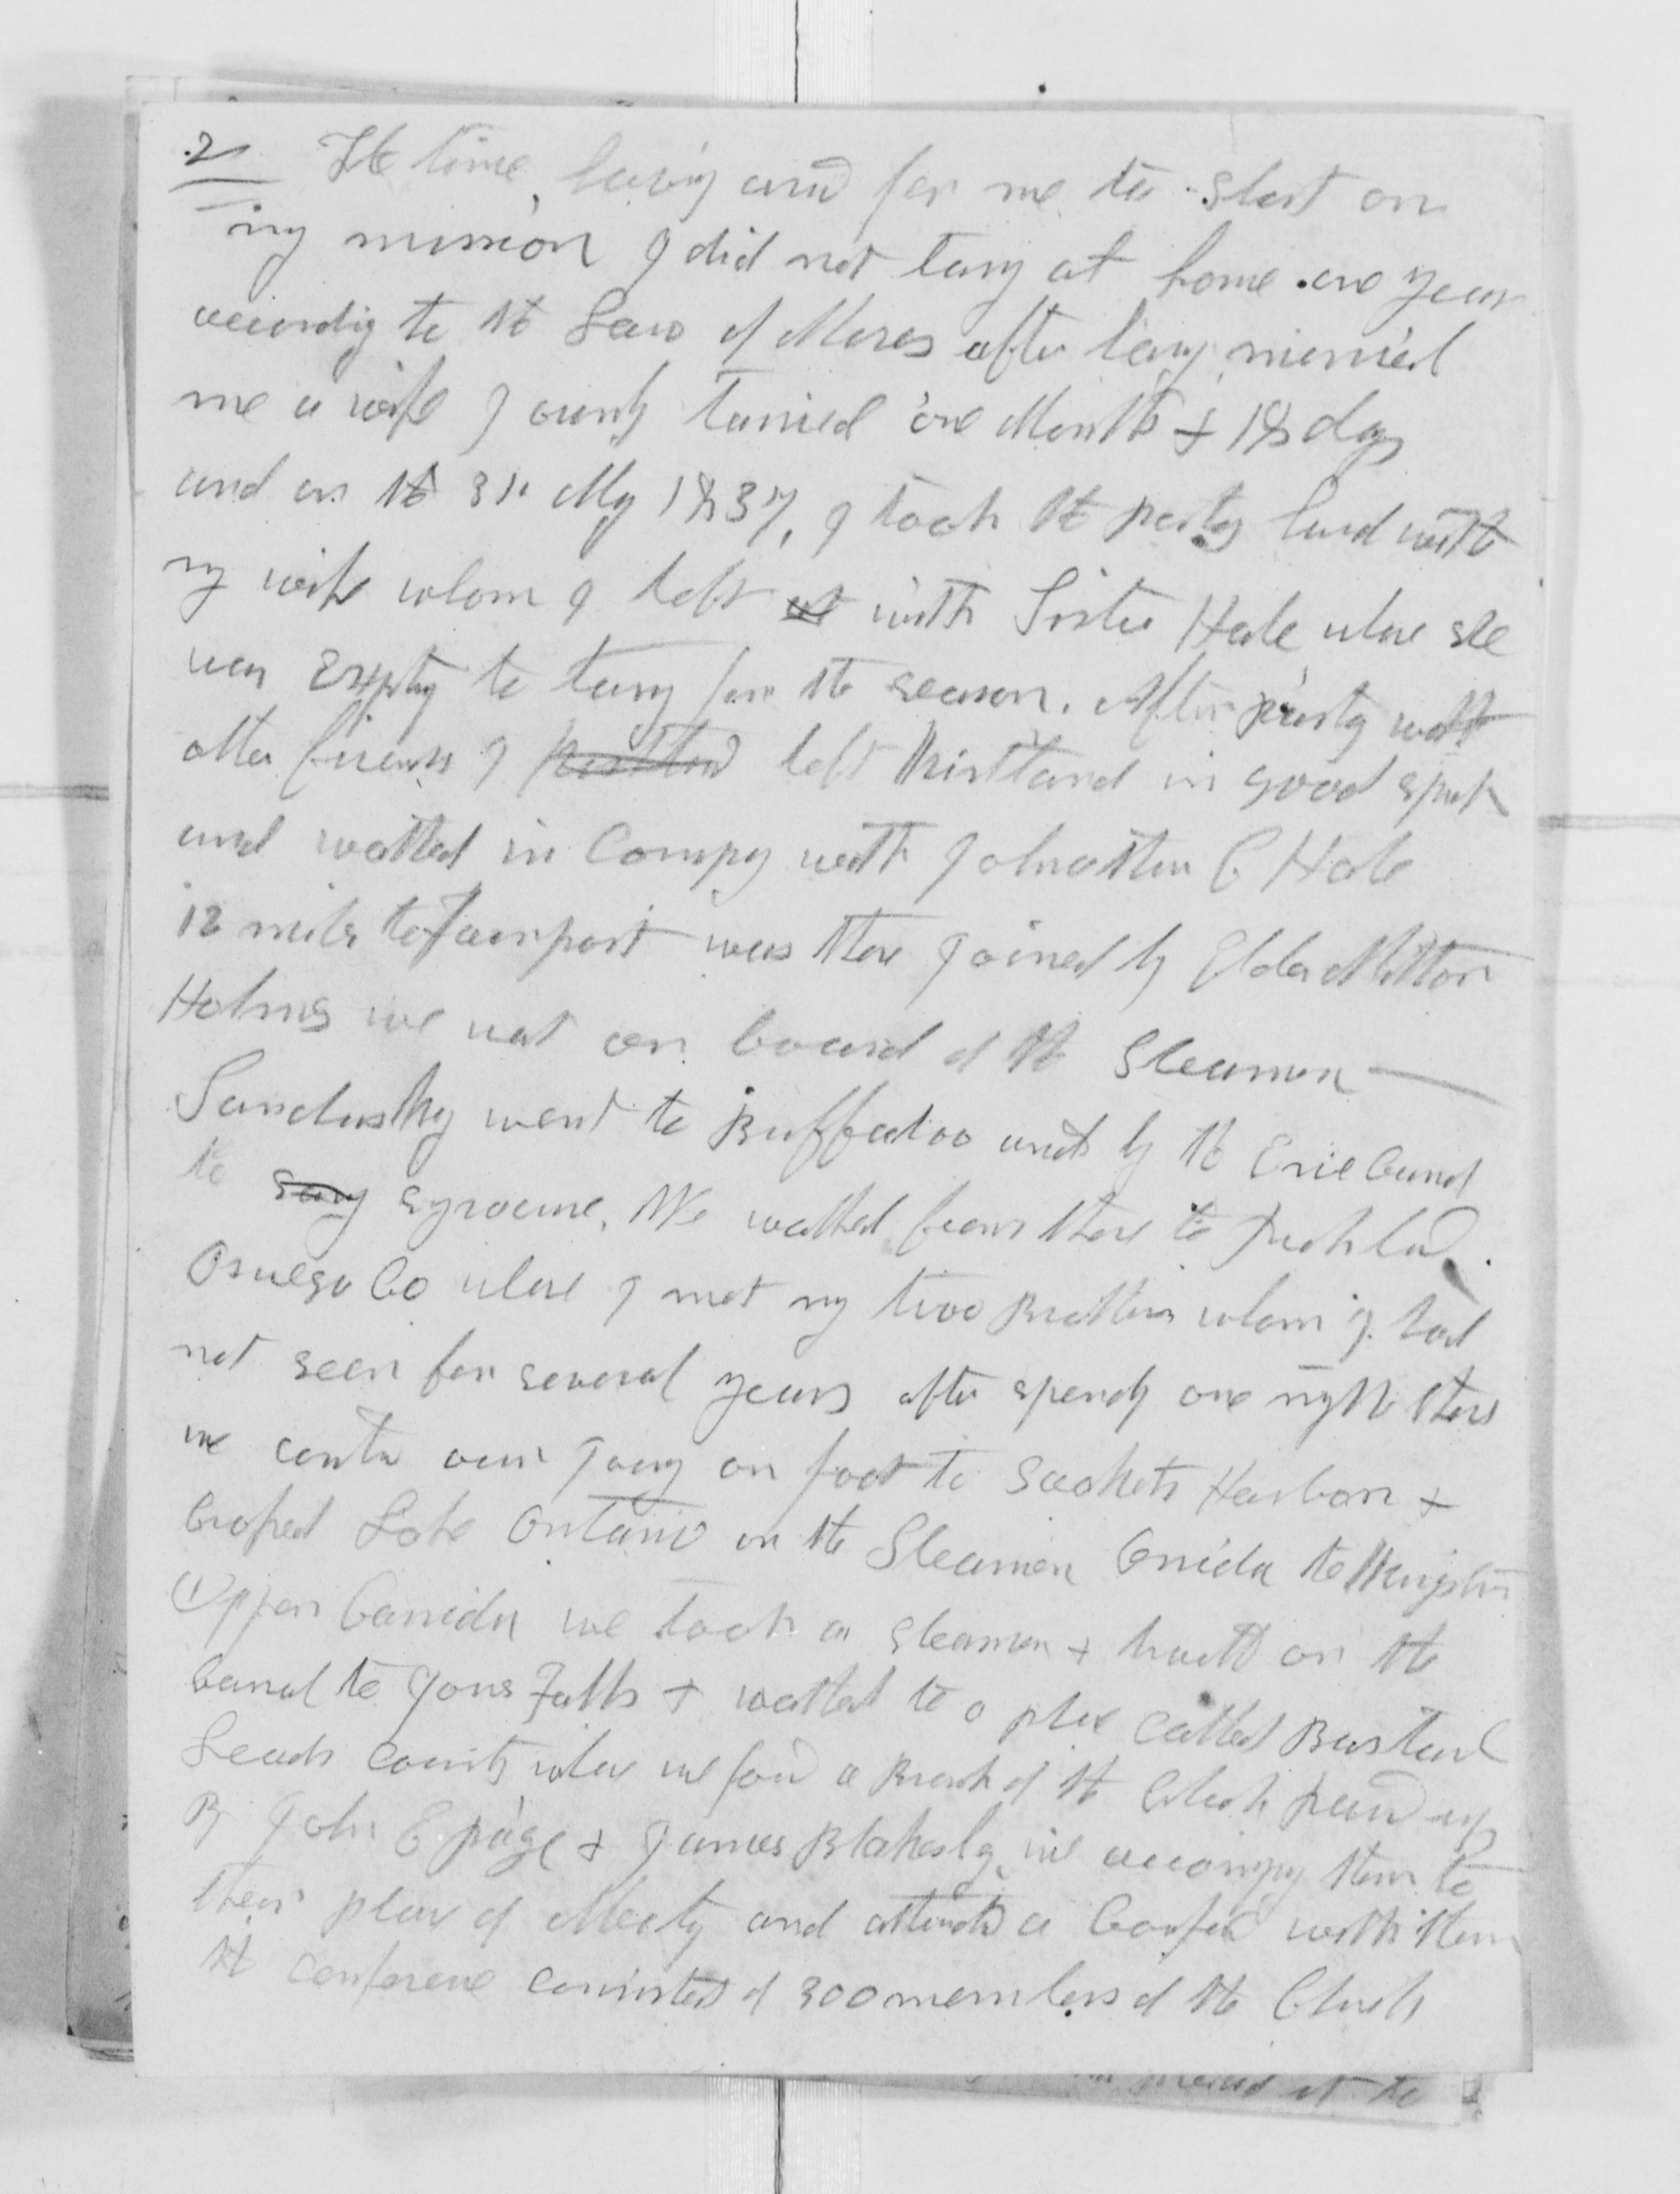 2 The time having arivd for me to start on
my mission I did not tary at home one year
accordig to the Law of Moses after havig married
me a wife I ounly tarried one Month & 18 days
and on the 31. May 1837, I took the parting hand with
my wife whom I left at with Sister Hale whare she
was Expting to tarry for the season. After parting with
other friends I parted left Kirtland in good spirits
and walked in Compny with Johnathan C Hale
12 miles to Fairport was there joined by Elder Milton
Holmes we went on board of the Steamer
Sandusky went to Buffaloo and by the Erie Canal
to Syracuse. We walked from there to Richland
Oswego Co whare I met my two Brothers whom I had
not seen for several years after spendig one night there
we contin our journy on foot to Sackets Harbor &
Crossed Lake Ontario on the Steamer Oneida to Kingston
Upper Canida we took a steamer & travld on the
Canal to Jons Falls & walked to a place called Bastard
Leeds County whare we found a Branch of the Church raisd up
By John E page & James Blakesly. we accompny them to
their place of Meetig and attended a Confere with them
the conference consisted of 300 members of the Church